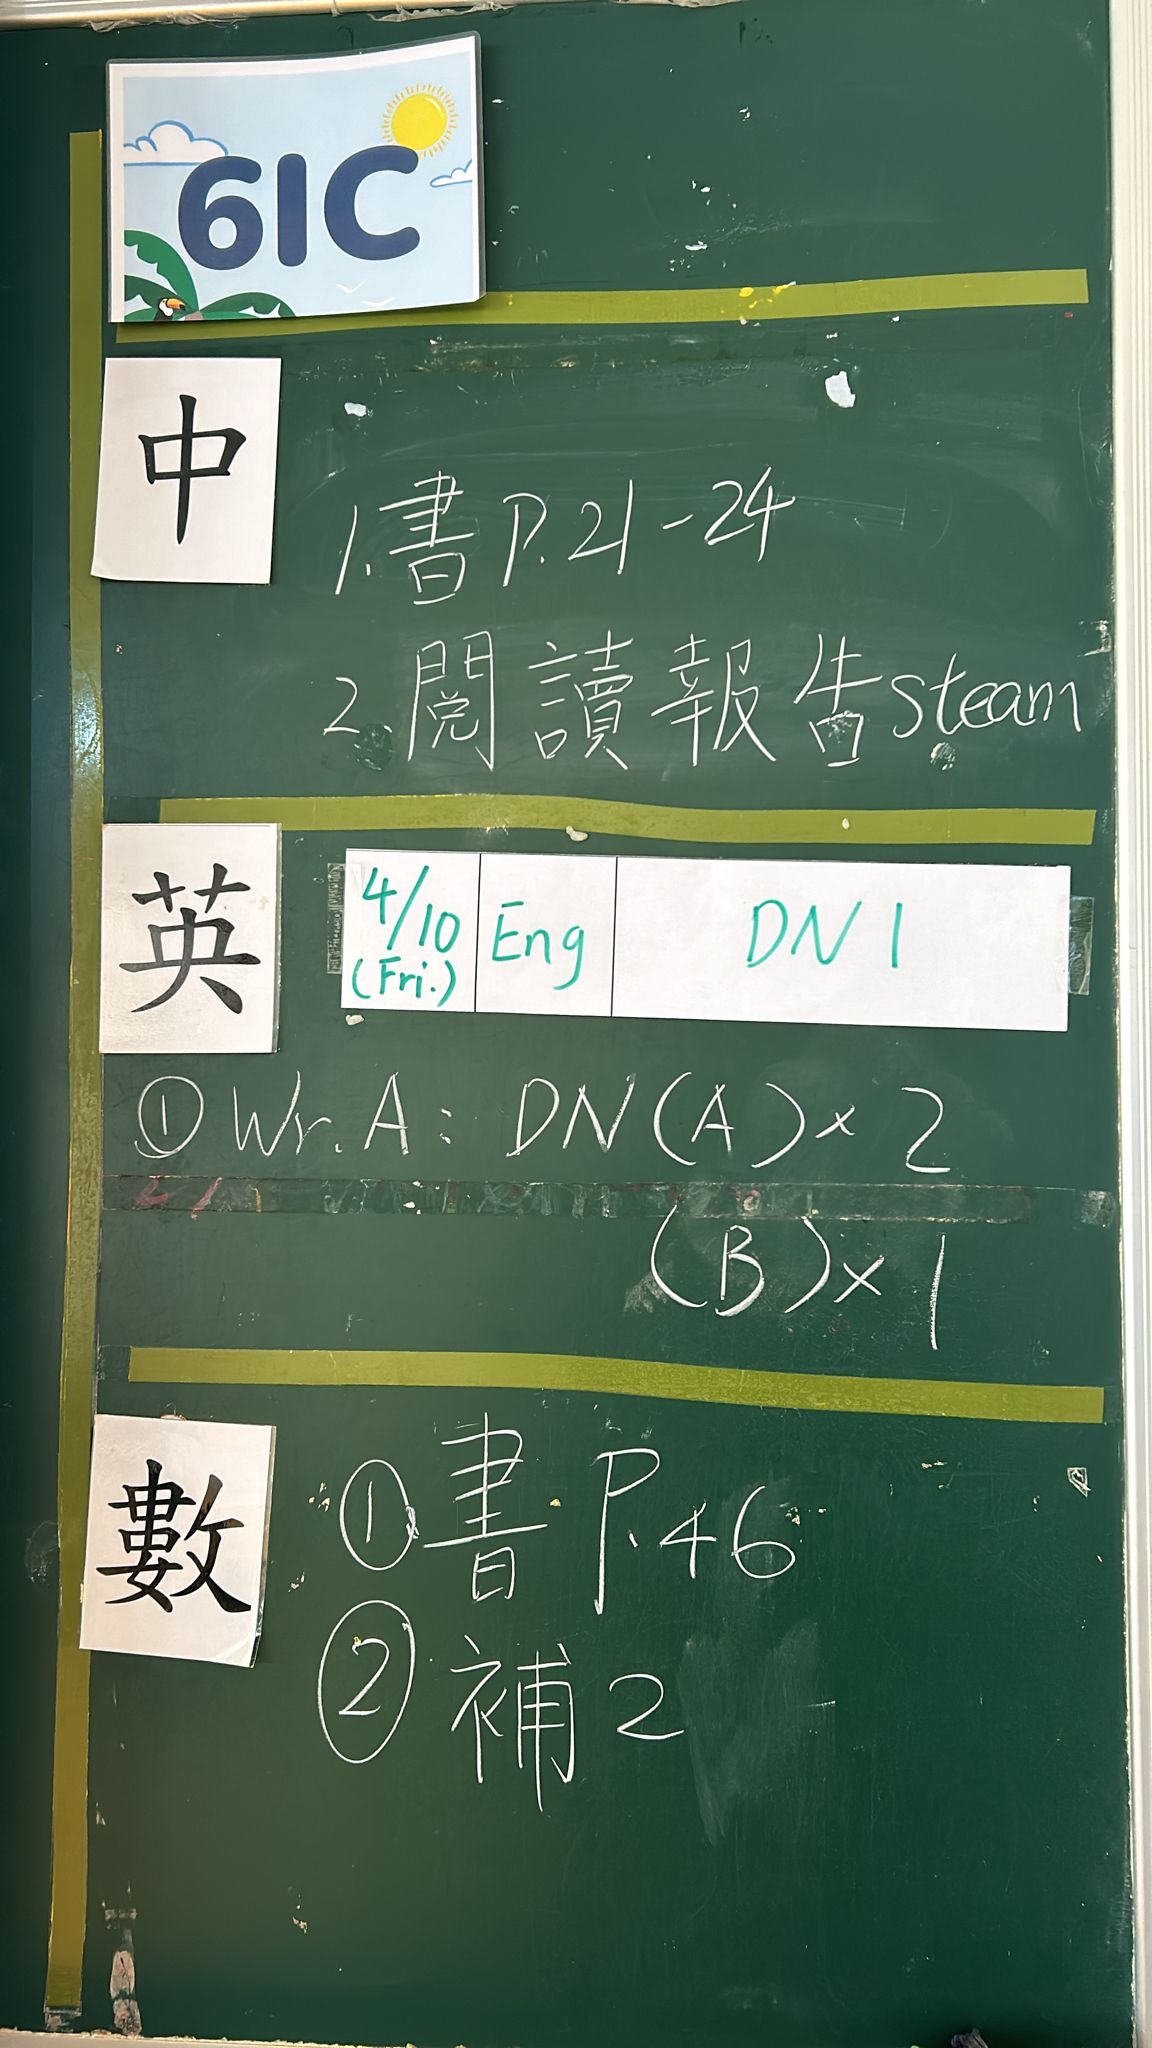 6IC
中
1.書P.21-24
2.閱讀報告steam
英
4/10 (Fri.) Eng DN 1
①Wr. A: DN(A)×2
(B)×1
數
①書P.46
②補2